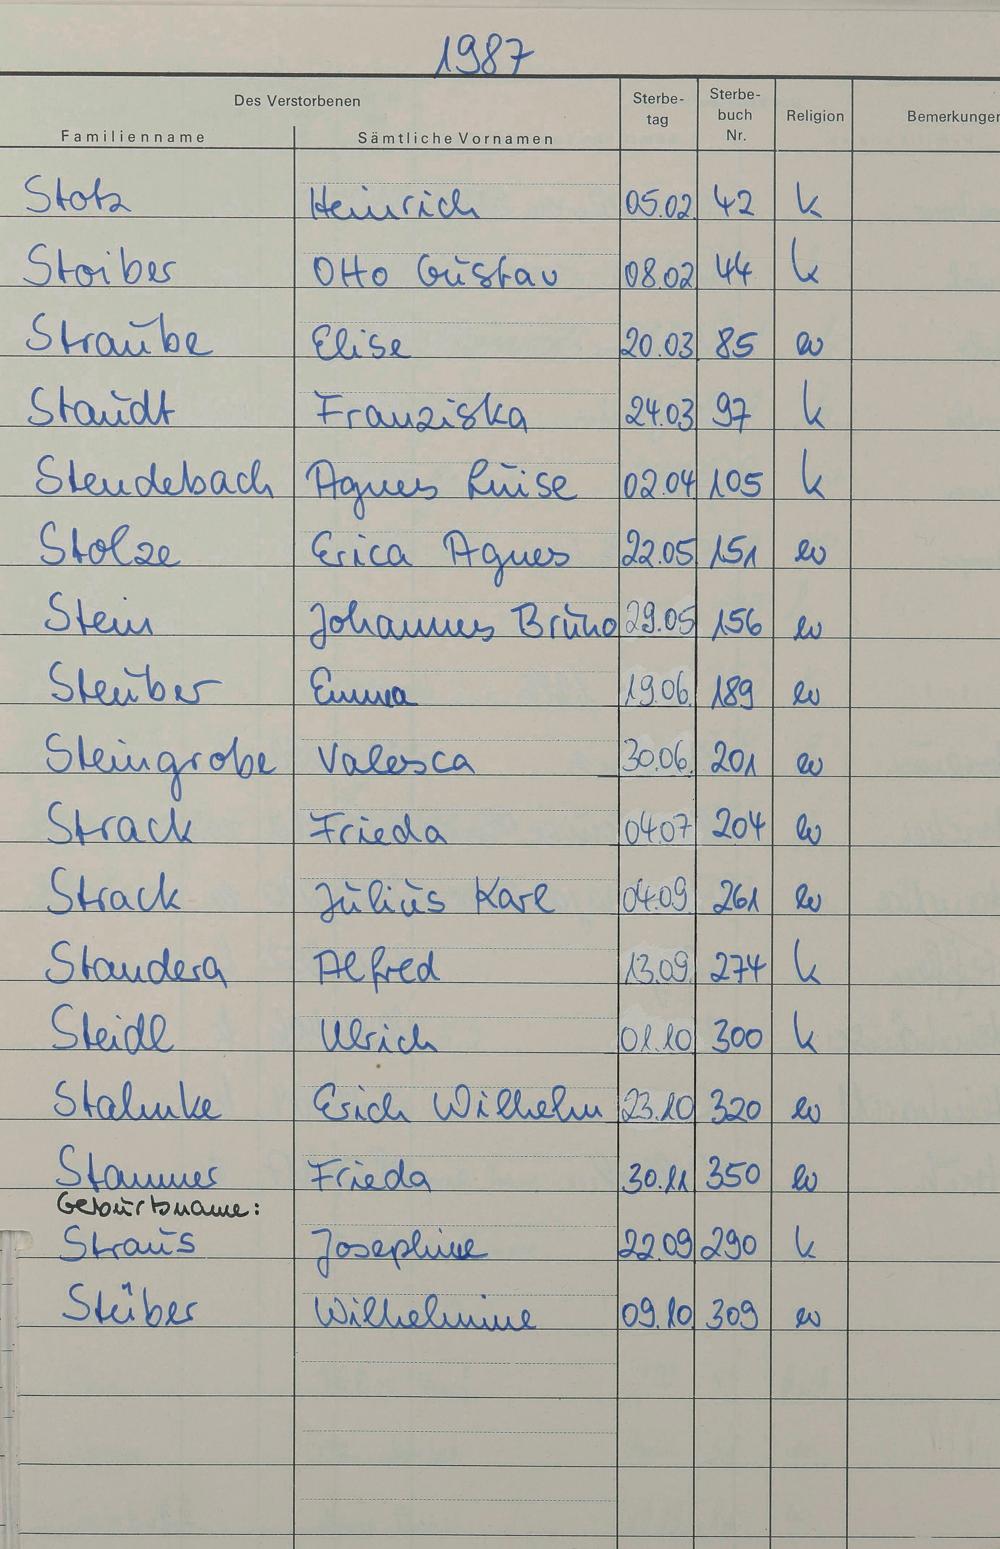 1987
Des Verstorbenen
Familienname Sämtliche Vornamen Sterbe-tag Sterbe-buch Nr. Religion Bemerkungen
Stotz Heinrich 05.02 42 k
Stoiber Otto Gustav 08.02 44 k
Straube Elise 20.03 85 ev
Staudt Franziska 24.03 97 k
Steudebach Agnes Luise 02.04 105 k
Stolze Erica Agnes 22.05 151 ev
Stein Johannes Bruno 29.05 156 ev
Steuber Emma 19.06. 189 ev
Steingrobe Valesca 30.06. 201 ev
Strack Frieda 04.07 204 ev
Strack Julius Karl 04.09. 261 ev
Standera Alfred 13.09. 274 k
Steidl Ulrich 01.10 300 k
Stahnke Erich Wilhelm 23.10 320 ev
Stammer Frieda 30.11 350 ev
Geburtsname:
Straus Josephine 22.09 290 k
Stüber Wilhelmine 09.10 309 ev